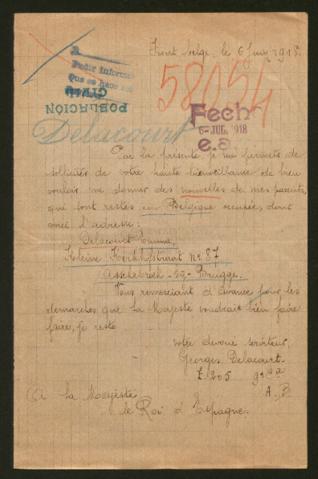 Front belge, le 6 Juin 1918.
A
Pedir informe
Que se hace
POBLACIÓN
CIVIL
58054
Fech
6-JUL.1918
e.a.
Delacourt
Par la présente je me permets de
solliciter de votre haute bienveillance de bien
vouloir me donner des nouvelles de mes parents,
qui sont restés en Belgique occupée, dont
voici l'adresse:
Delacourt
Kleine Kerkhofstraat No 87
Assebrouck - Brugge.
Vous remerciant d'avance pour les
démarches que Sa Majesté voudrait bien faire
faire, je reste
votre dévoué serviteur,
Georges Delacourt.
Z 205
A.B.
(A Sa Majesté
le Roi d'Espagne.